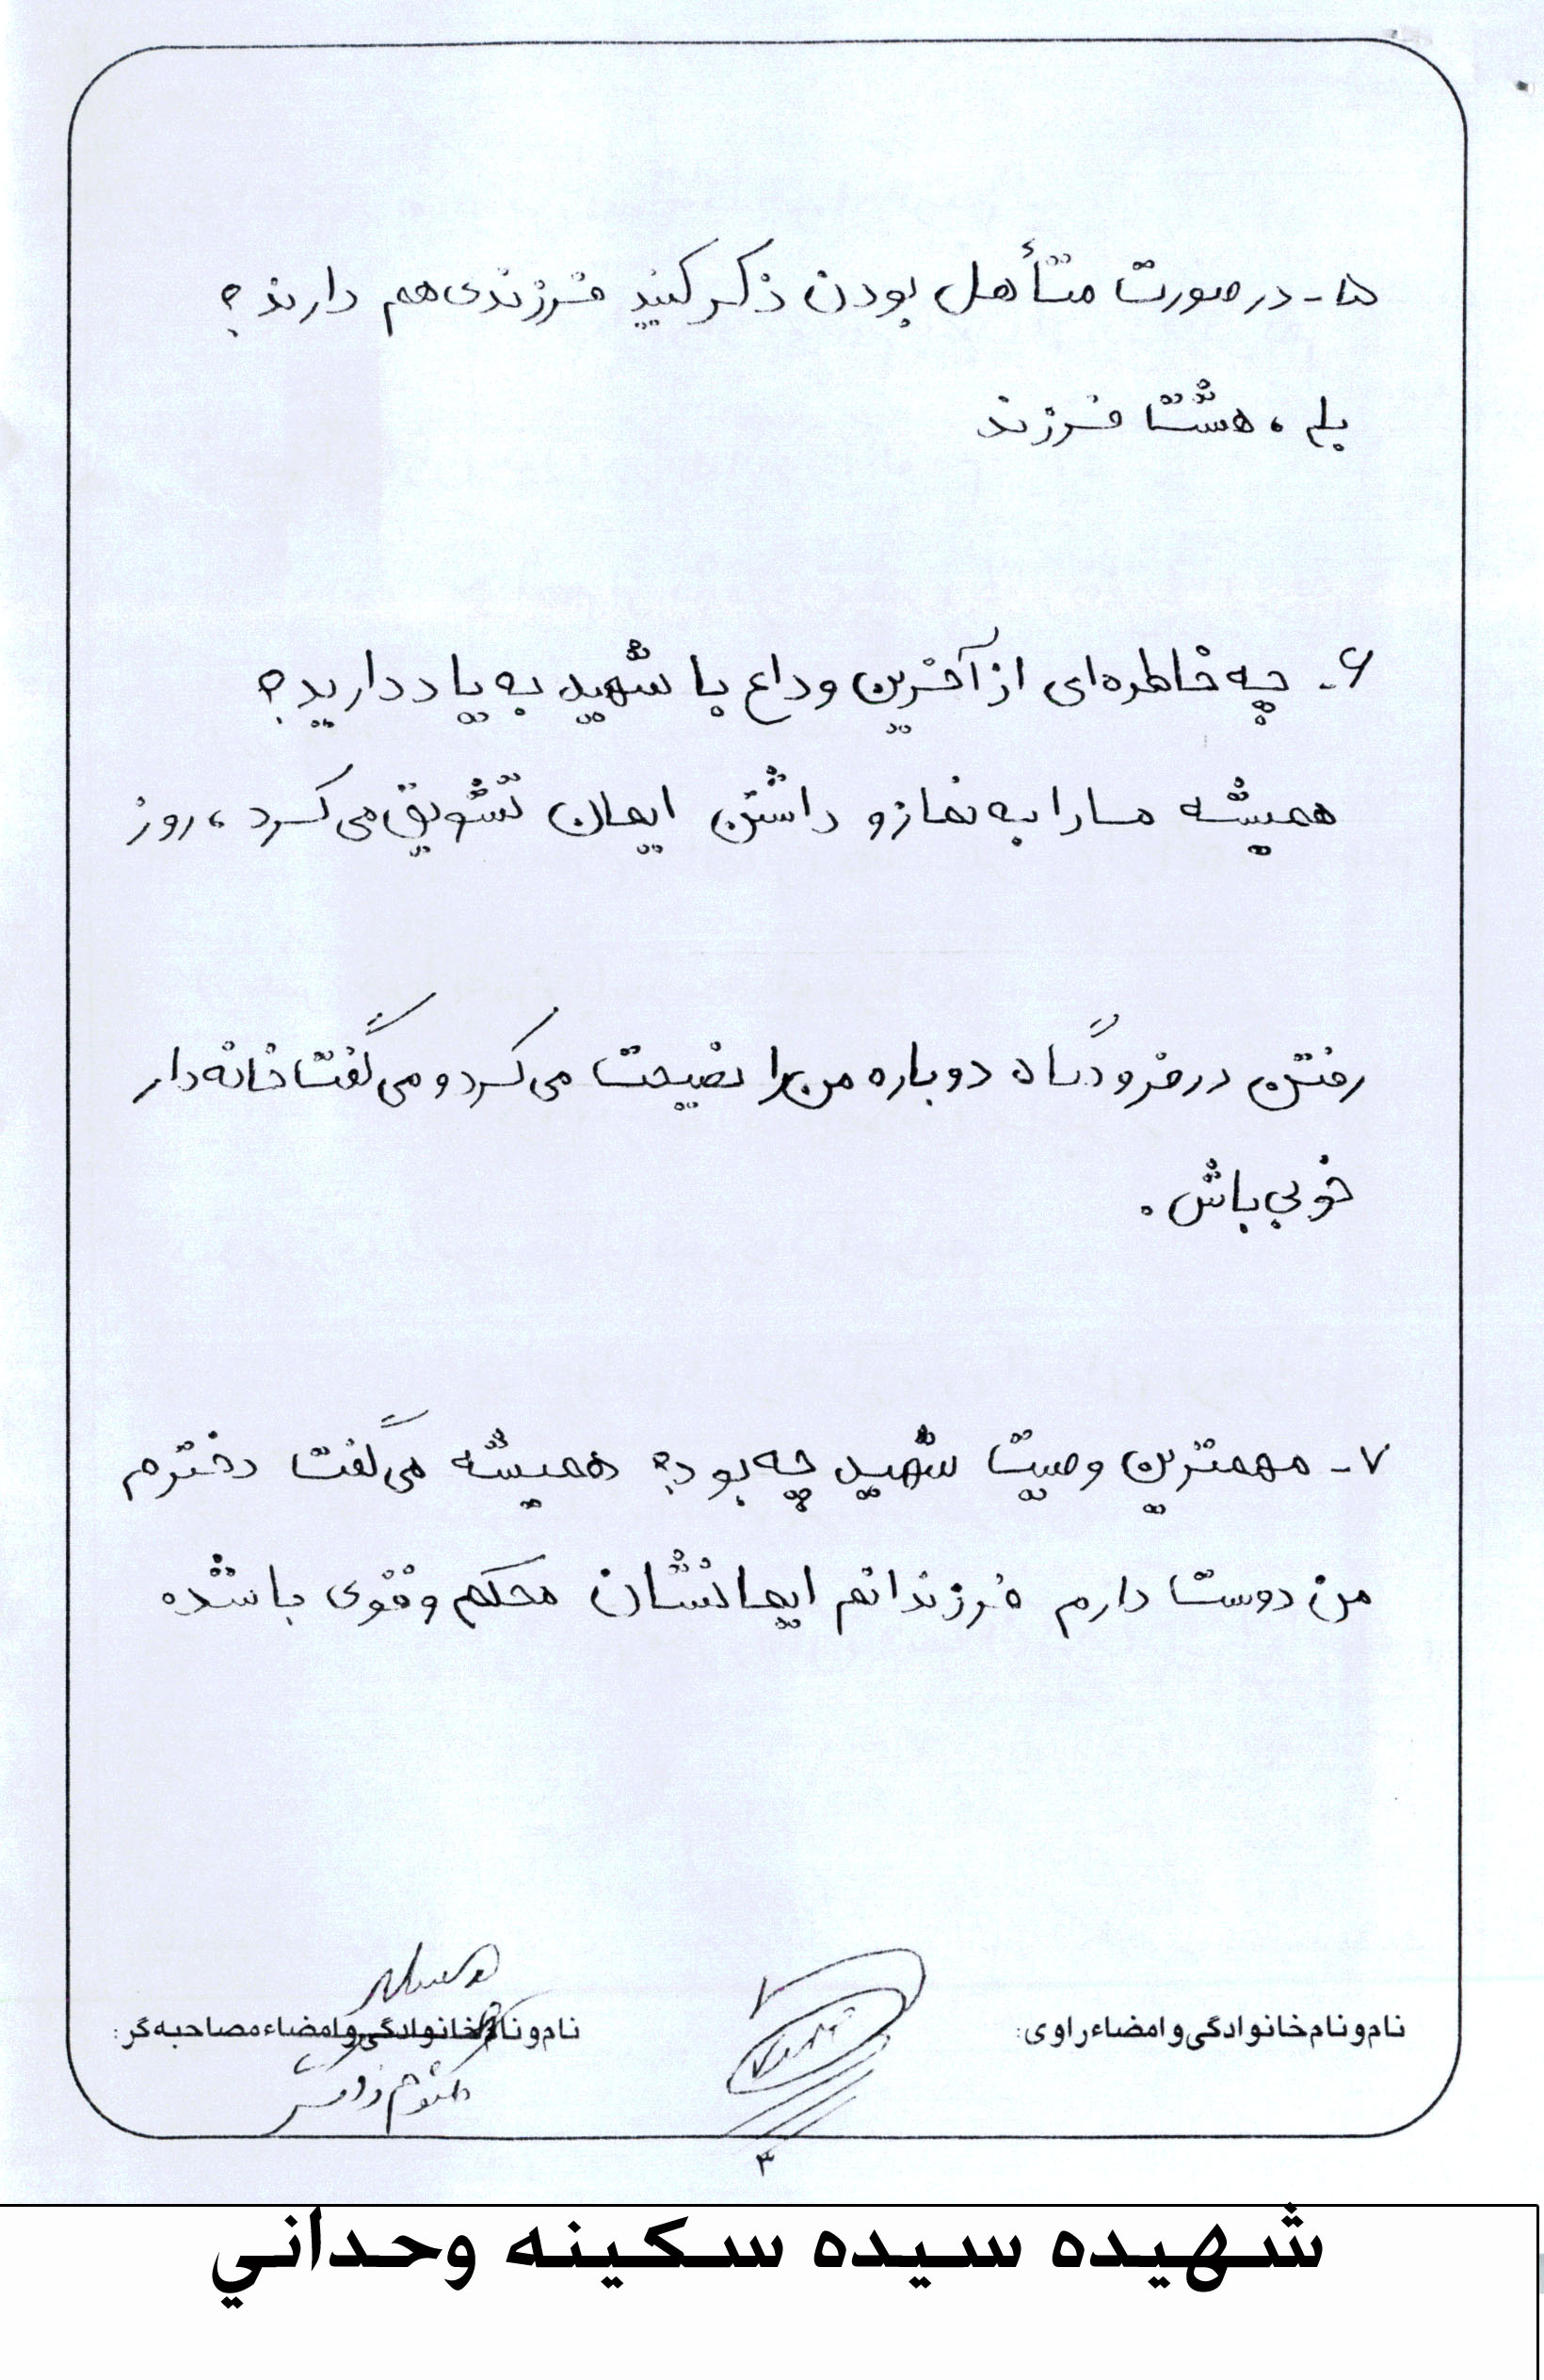 ۵- در صورت متأهل بودن ذکر کنید فرزندی هم دارند؟
بله، هشت فرزند
۶- چه خاطره‌ای از آخرین وداع با شهید به یاد دارید؟
همیشه ما را به نماز و داشتن ایمان تشویق می‌کرد، روز
رفتن در فرودگاه دوباره من را نصیحت می‌کرد و می‌گفت خانه‌دار
خوبی باش.
۷- مهمترین وصیت شهید چه بود؟ همیشه می‌گفت دخترم
من دوست دارم فرزندانم ایمانشان محکم و قوی باشده
نام و نام خانوادگی و امضاء راوی:
نام و نام خانوادگی و امضاء مصاحبه‌گر:
۳
شهيده سيده سکينه وحداني